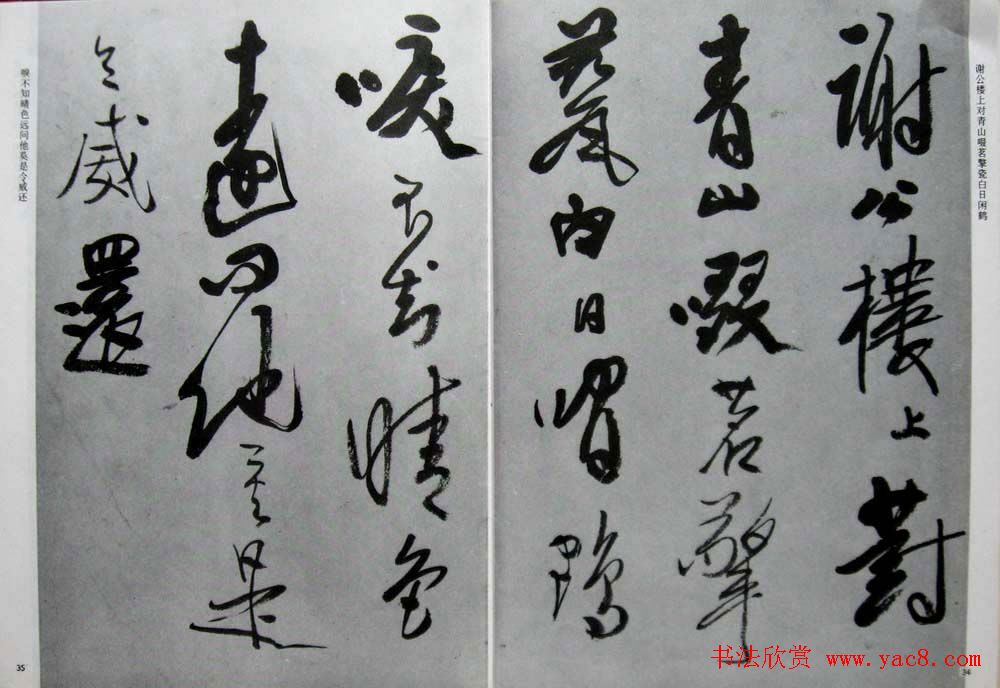 谢公楼上对青山啜茗擎瓷白日闲鹤
謝公樓上對
青山啜茗擎
甆白日閒鶴
34
唳不知晴色
遠問他莫是
令威還
唳不知晴色远问他莫是令威还
35
书法欣赏 www.yac8.com